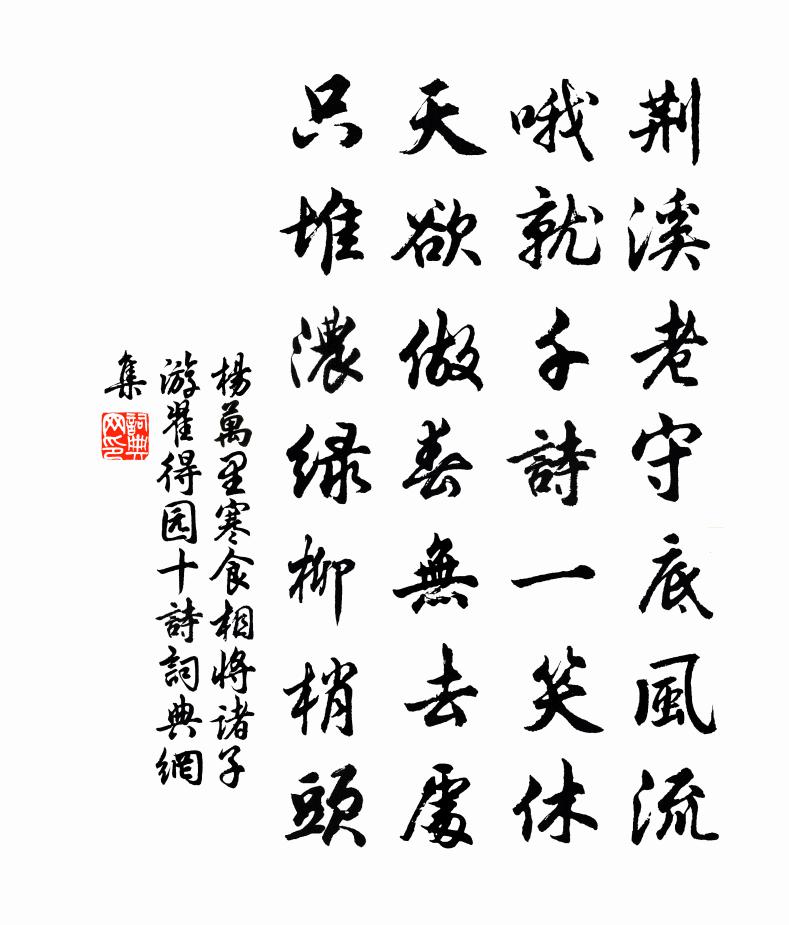 荆溪老守底風流
哦就千詩一笑休
天欲做春無去處
只堆濃緑柳梢頭
楊萬里寒食相將諸子
游瞿得园十詩詞典網
集
詞典網印